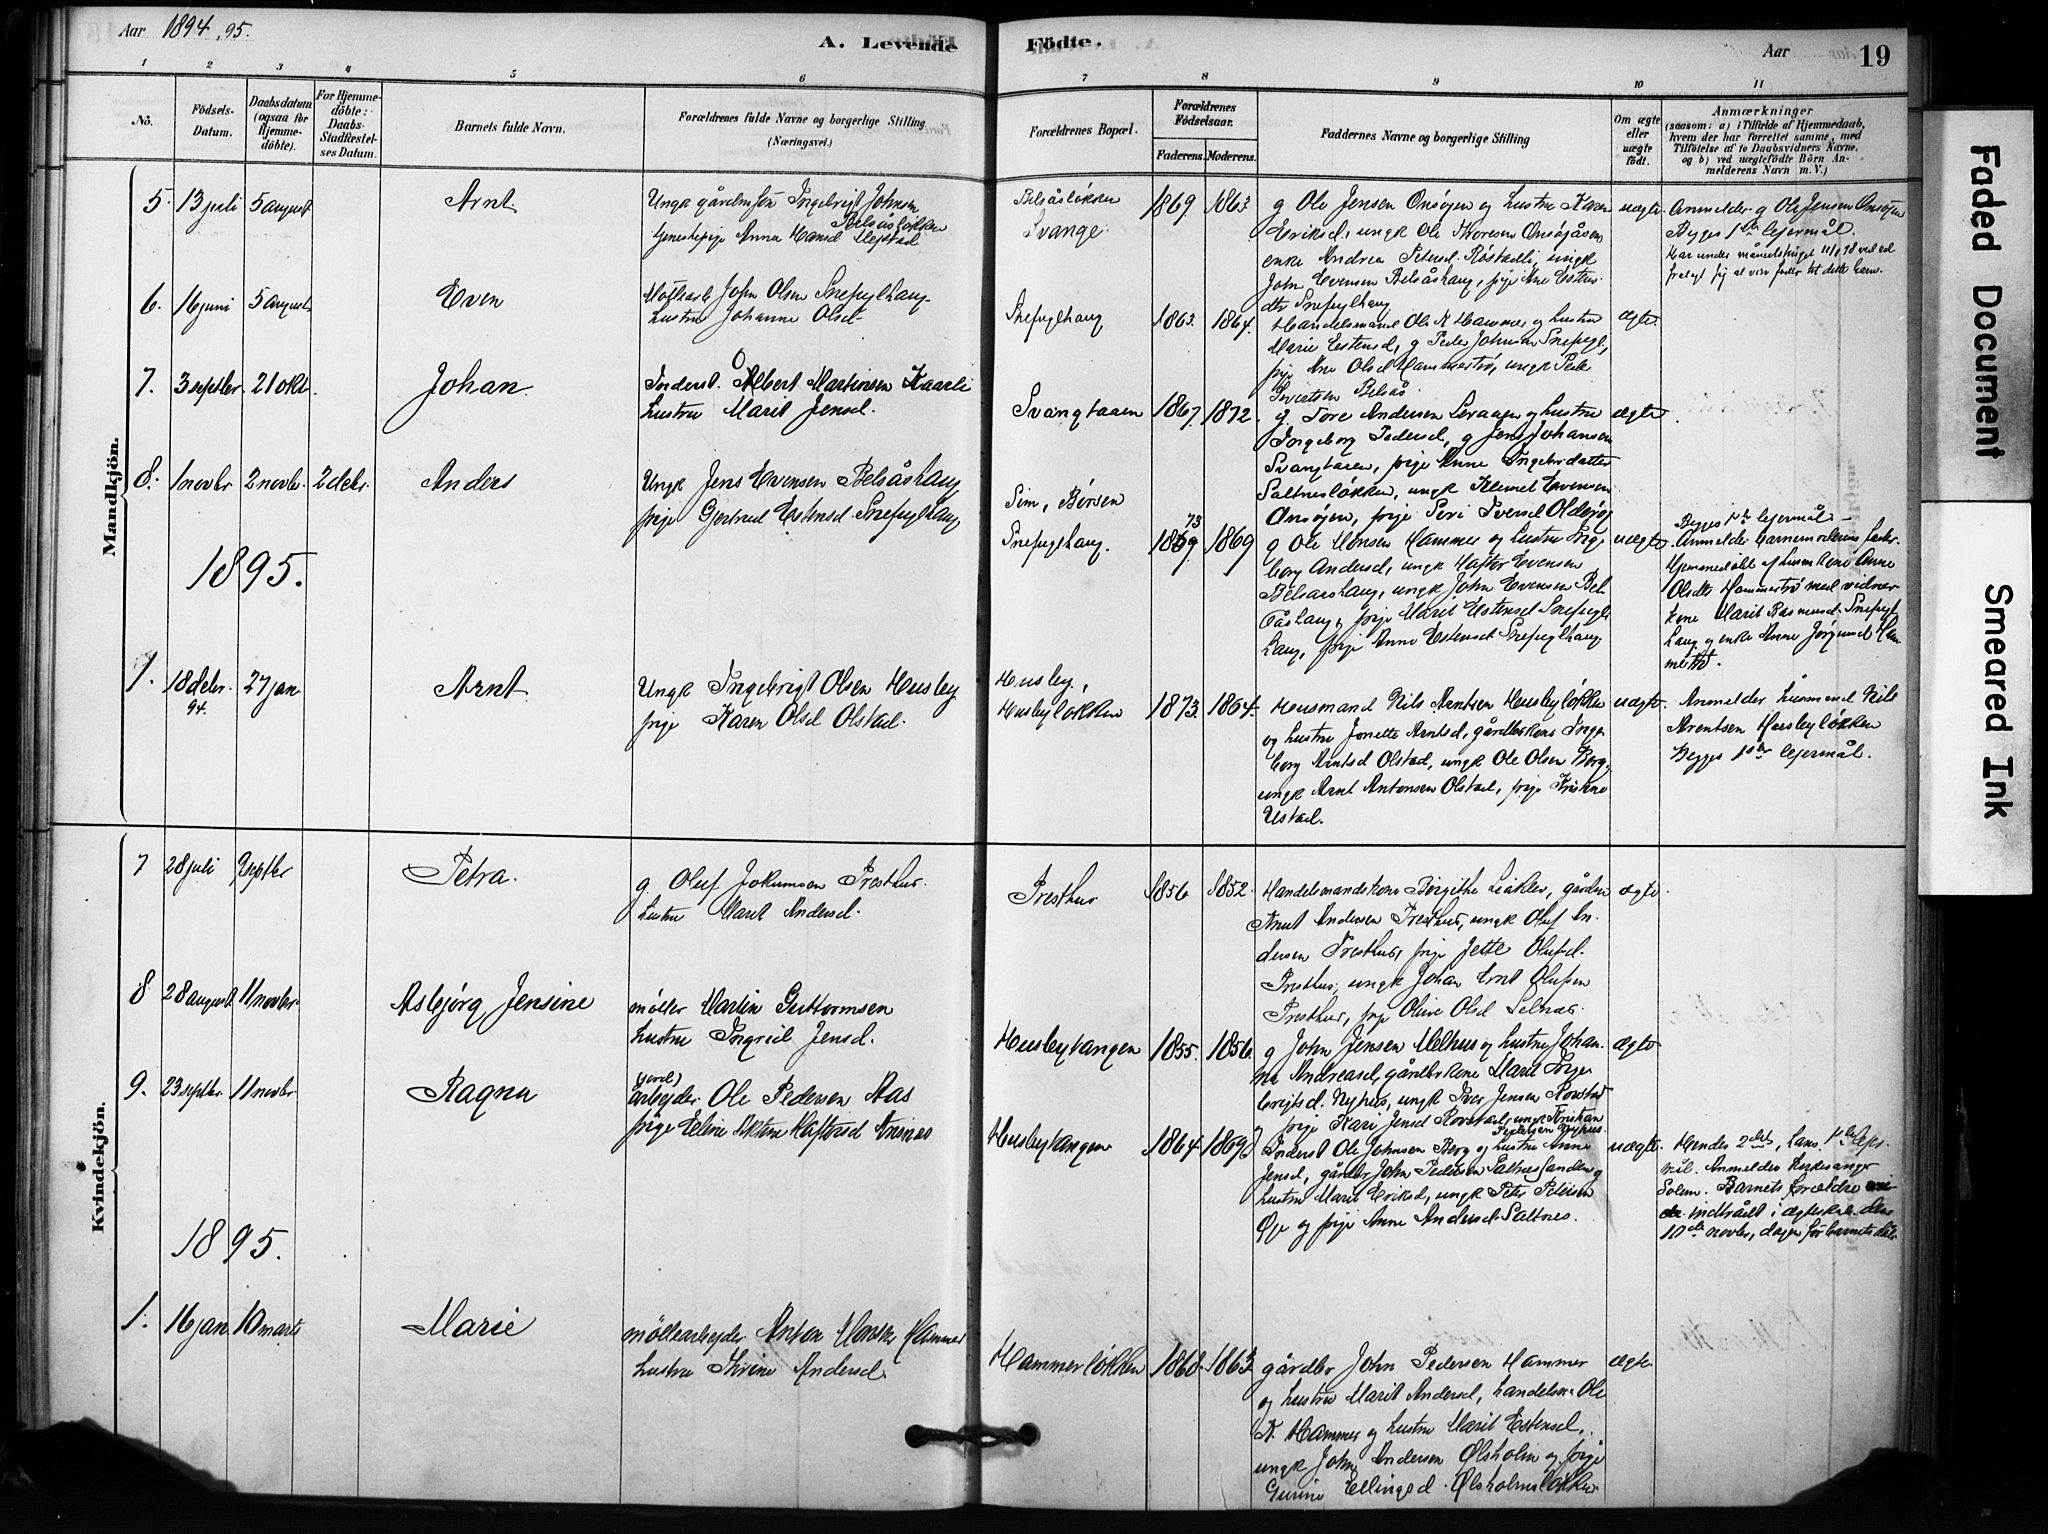 Aar 1894, 95.
A. Levende Födte.
Aar
19
1 2 3 4 5 6 7 8 9 10 11
No.
Födsels-Datum.
Daabsdatum (ogsaa for Hjemme-döbte).
For Hjemme-döbte: Daabs-Stadfæstel-ses Datum.
Barnets fulde Navn.
Forældrenes fulde Navne og borgerlige Stilling
(Næringsvei.)
Forældrenes Bopæl.
Forældrenes Födselsaar.
Faderens. Moderens.
Faddernes Navne og borgerlige Stilling
Om ægte eller uægte födt.
Anmærkninger
(saasom: a) i Tilfælde af Hjemmedaab,
hvem der har forrettet samme, med
Tilföielse af to Daabsvidners Navne,
og b) ved uægtefödte Börn An-
melderens Navn m. V.)
Mandkjön.
5. 13 juli 5 august Arnt
Ungk gårdmsøn Ingebrigt Johnsen
Belsåsløkken
Tjenestepige Anna Hansd
Belsåsløkken
Svange.
1869 1863
g Ole Jensen Onsøyen og hustru Karen
Eriksd, ungk Ole Thoresen Onsøjåsen,
enke Andrea Petersd Røstadli, ungk
John Evensen Belsåshaug, pige Ane Esten-
dtr Snefuglhaug
uægte.
Anmelder g Ole Jensen Onsøyen
Begges 1ste lejermål.
6. 16 juni 5 august Even
John Olsen Snefuglhaug
hustru Johanne Olsd.
Snefuglhaug 1863. 1864.
Handelsmand Ole A Hammer og hustru
Marie Estensd, g Peder Johnsen Snefugl,
pige Ane Olsd Hammertrø, ungk Peder
Sivertsen Belsås
ægte.
7. 3 septbr. 21 okt. Johan.
Inderst. Albert Martinsen Kaarli
hustru Marit Jensd.
Svangtaaen 1867. 1872.
g. Tore Andersen Leraagen og hustru
Ingeborg Pedersd, g Jens Johansen
Svangtaaen, pige Anne Ingebrdatter
Saltnesløkken, ungk Klemet Evensen
Onsøyen, pige Seri Iversd
ægte
8. 1 novbr 2 novbr. 2 debr. Anders
Ungk Jens Evensen Belsåshaug
pige Gjertrud Estensd. Snefuglhaug
Sim, Børsen
Snefuglhaug.
73
1869. 1869
g Ole Monsen Hammer og hustru Inge-
borg Andersd, ungk Hafter Evensen
Belsaashaug, ungk John Evensen Bel-
såshaug, pige Marit Estensd Snefugl-
haug, pige Anne Estensd Snefuglhaug
uægte.
Begges 1ste lejermål –
Anmelder barnemoderens fader.
Hjemmedøbt af huuskone Anne
Olsdtr Hammertrø med vidner
kone Marit Rasmusd. Snefugl-
haug og enke Anne Jørginsd Ham-
mertrø.
1895.
1. 18 debr. 94. 27 jan Arnt
Ungk Ingebrigt Olsen Husby
pige Karen Olsd Olstad.
Husby,
Husbyløkken 1873. 1864.
Husmand Nils Arntsen Husbyløkken
og hustru Jonette Arntsd, gårdbrkone Inge-
borg Arntsd Olstad, ungk Ole Olsen Berg,
ungk Arnt Antonsen Olstad, pige Kristine
Ustad.
uægte.
Anmelder husmand Nils
Arentsen Husbyløkken
Begges 1ste lejermål.
Kvindekjön.
7 28 juli 9 septbr Petra.
g. Oluf Jokumsen Presthus.
hustru Marit Andersd.
Presthus 1856 1852.
Handelsmandskone Birgithe Liaklev, gårdm
Knut Andersen Presthus, ungk Oluf An-
dersen Presthus, pige Jette Olufsd.
Presthus, ungk Johan Ernt Olufsen
Presthus, pige Oline Olsd Selnæs.
ægte
8 28 august. 11 novbr. Asbjørg Jensine
møller Martin Guttormsen
hustru Ingrid Jensd.
Husbytangen 1855. 1856.
g John Jensen Melhus og hustru Johan-
na Andreasd, gårdbrkone Marit Inge-
brigtsd. Nyhus, ungk Iver Jensen Rovstad
pige Kari Jensd Rovstad, ungk Kristian
Pedersen Nyhus.
ægte
9. 23 septbr. 11 novbr Ragna
(jord)
arbejder Ole Pedersen Aas
pige Eline Haftersd Ansnes
Husbytangen 1864. 1869
Inderst Ole Johnsen Berg og hustru Anne
Jensd, gårdbr John Pedersen Saltnessanden og
hustru Marit Eriksd, ungk Peter Petersen
Øye og pige Anne Andersd. Saltnes.
uægte.
Hendes 2det, hans 1ste lejer-
mål. Anmelder kirkesanger
Solem. Barnets forældre
indtrådt i ægteskab den
10de novbr, dagen før barnets dåb.
1895.
1. 16 jan. 10 marts Marie
møllearbejder Anton Hammer
hustru Andersd.
Hammerløkken 1868. 1863
gårdbr John Pedersen Hammer
og hustru Marit Andersd, handelsm Ole
A Hammer og hustru Marit Estensd.,
ungk John Andersen Ølsholm og pige
Gurine Ellingsd. Ølsholmsløkken
ægte.
Faded Document
Smeared Ink